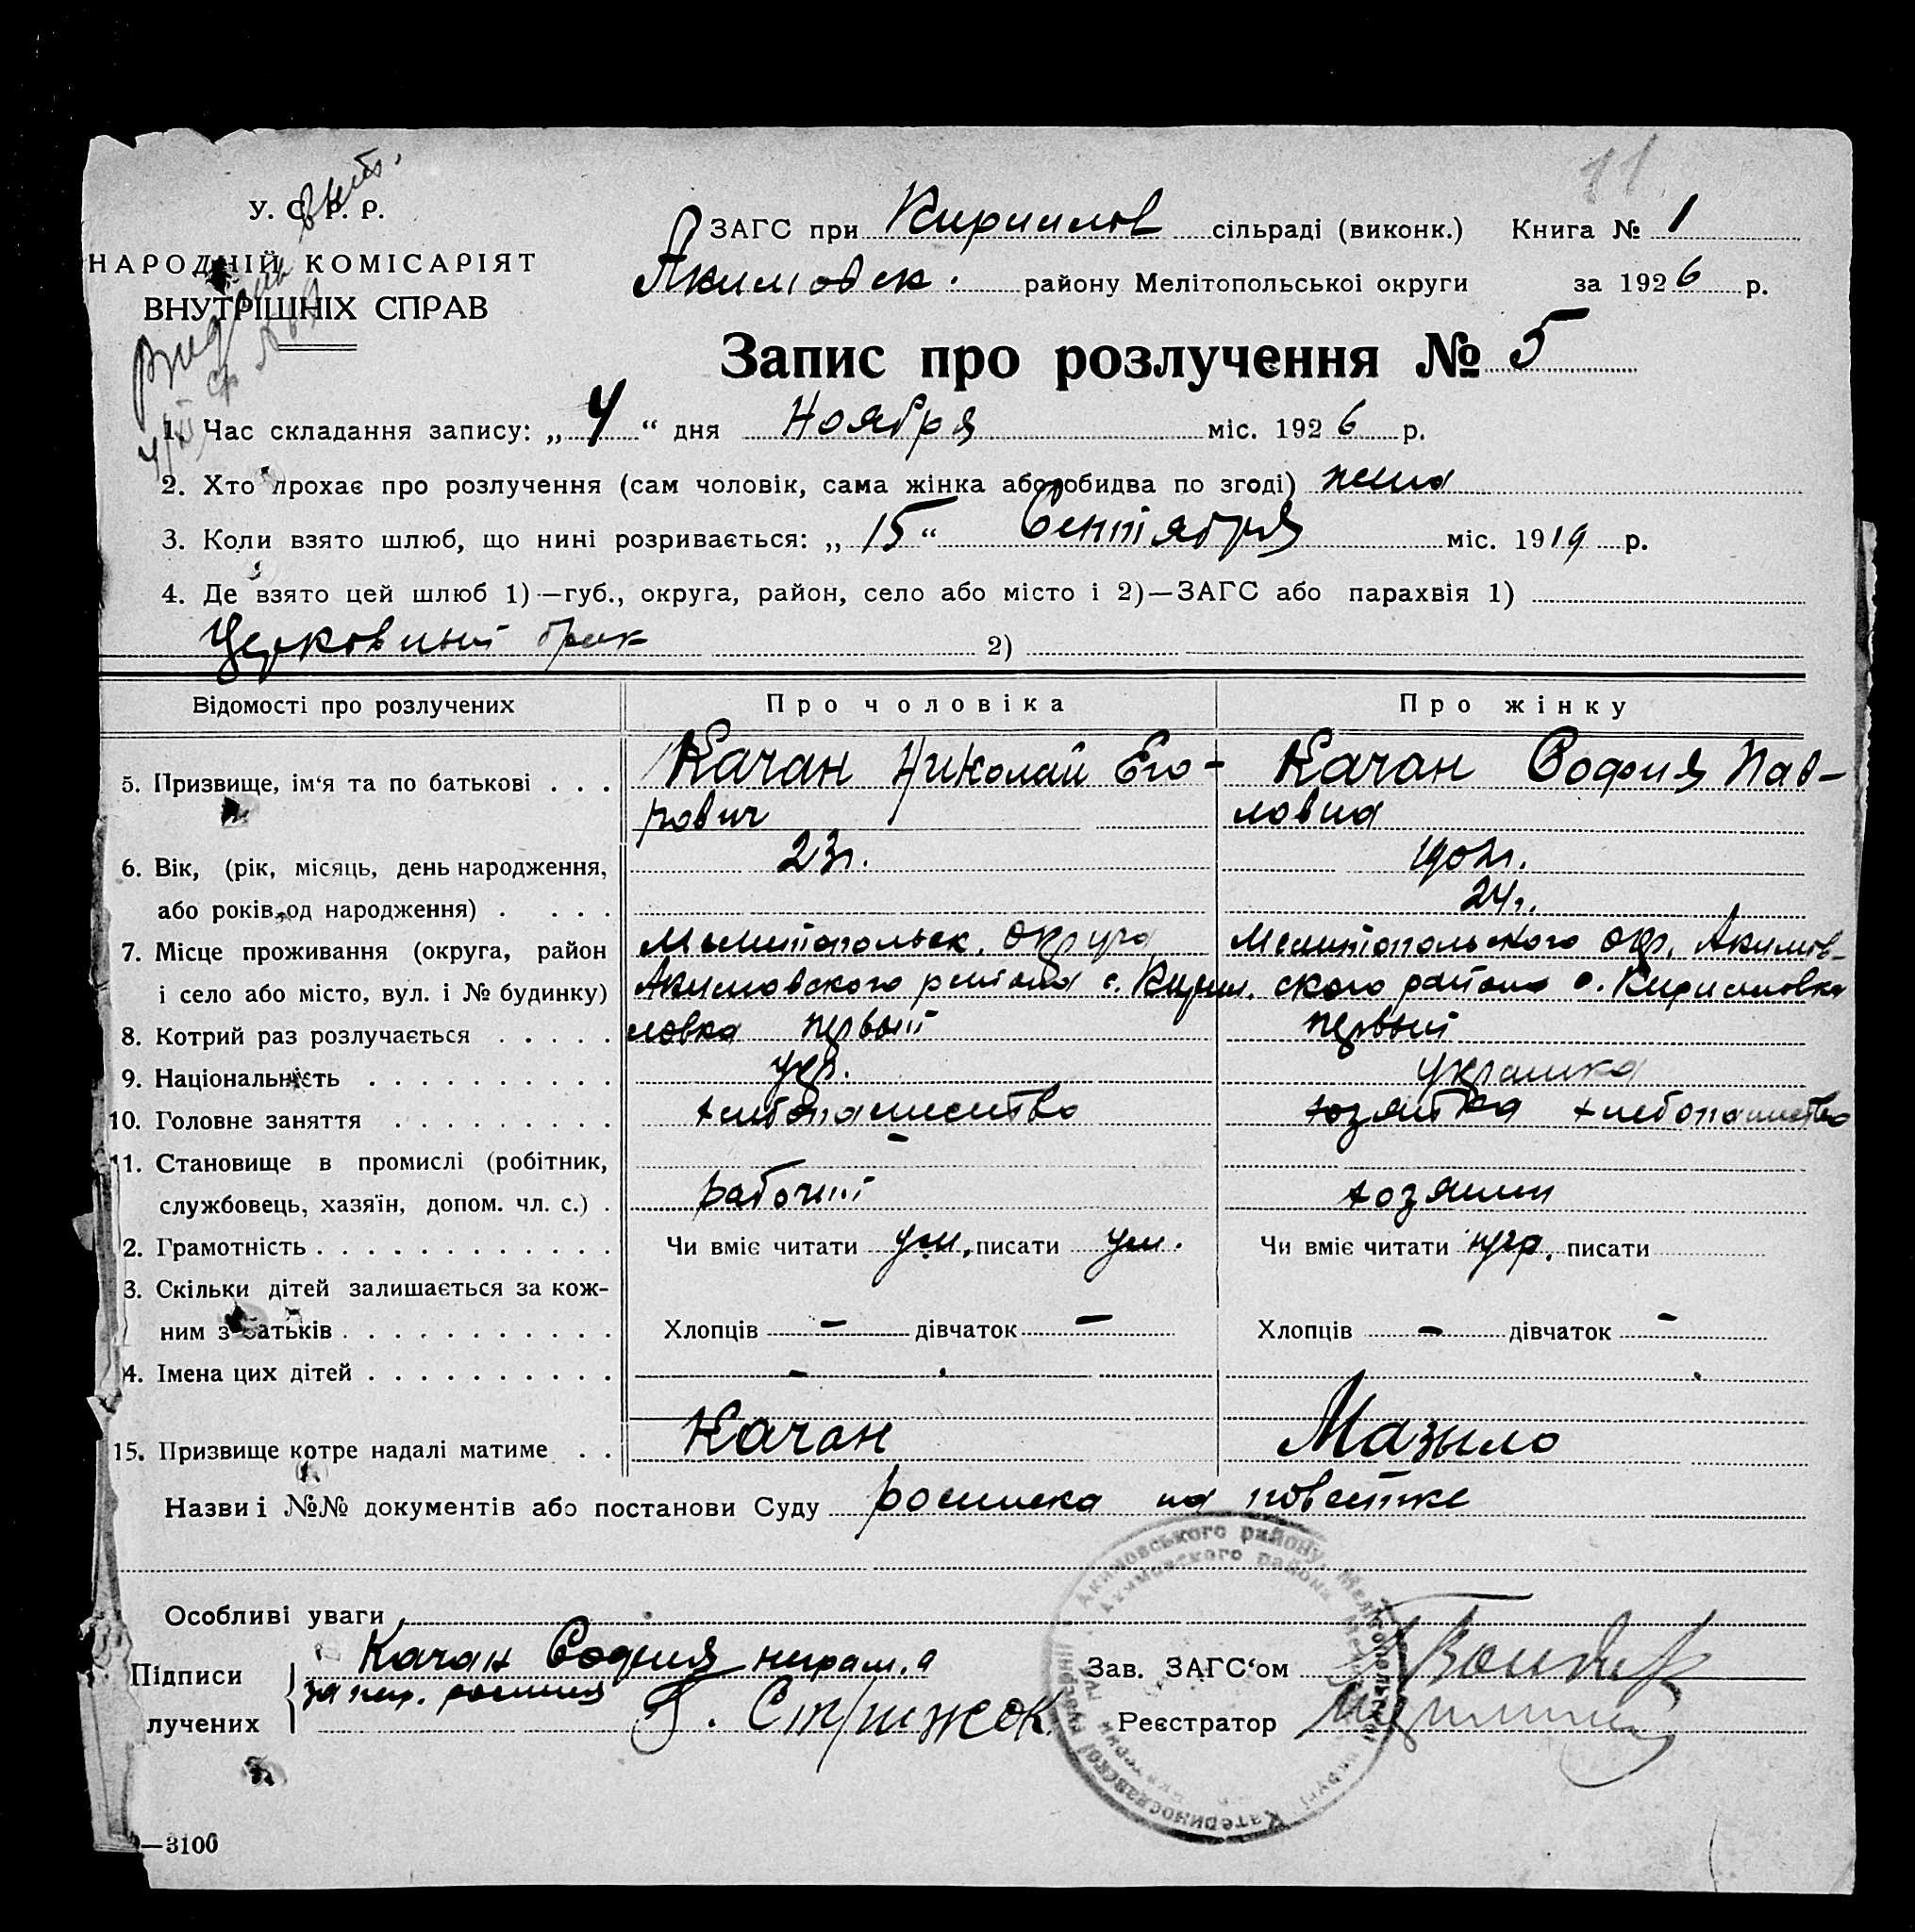 11
У. С. Р. Р.
НАРОДНІЙ КОМІСАРІЯТ
ВНУТРІШНІХ СПРАВ
ЗАГС при Кирилов сільраді (виконк.) Книга № 1
Акимовск. району Мелітопольської округи за 1926 р.
Запис про розлучення № 5
1. Час складання запису: „4“ дня Ноября міс. 1926 р.
2. Хто прохає про розлучення (сам чоловік, сама жінка або обидва по згоді) жена
3. Коли взято шлюб, що нині розривається: „15“ Сентября міс. 1919 р.
4. Де взято цей шлюб 1)—губ., округа, район, село або місто і 2)—ЗАГС або парахвія 1)
Церковный брак 2)
Відомості про розлучених Про чоловіка Про жінку
5. Призвище, ім‘я та по батькові . . . Качан Николай Его- Качан София Пав-
рович ловна
6. Вік, (рік, місяць, день народження, 23г. 1902г.
або років од народження) . . . . 24г.
7. Місце проживання (округа, район Мелитопольск. округа Мелитопольского окр. Акимов-
і село або місто, вул. і № будинку) Акимовского района с. Кирил. ского района с. Кирилловка
8. Котрий раз розлучається . . . . . ловка первый первый
9. Національність . . . . . . . . . . укр. украинка
10. Головне заняття . . . . . . . . . хлебопашество хозяйка хлебопашество
11. Становище в промислі (робітник, –
службовець, хазяїн, допом. чл. с.) . рабочий хозяин
2. Грамотність . . . . . . . . . . . . Чи вміє читати ум. писати ум. Чи вміє читати негр. писати
3. Скільки дітей залишається за кож-
ним з батьків . . . . . . . . . . . Хлопців – дівчаток – Хлопців – дівчаток –
4. Імена цих дітей . . . . . . . . . . –
15. Призвище котре надалі матиме . . Качан Мазыло
Назви і №№ документів або постанови Суду росписка на повестке
Особливі уваги
Підписи Качан София неграм.а Зав. ЗАГС‘ом
лучених за нер. Стрижок Реєстратор
Акимовського району Мелітопольської округи Катеринославської губерні
Акимовского района
—3100